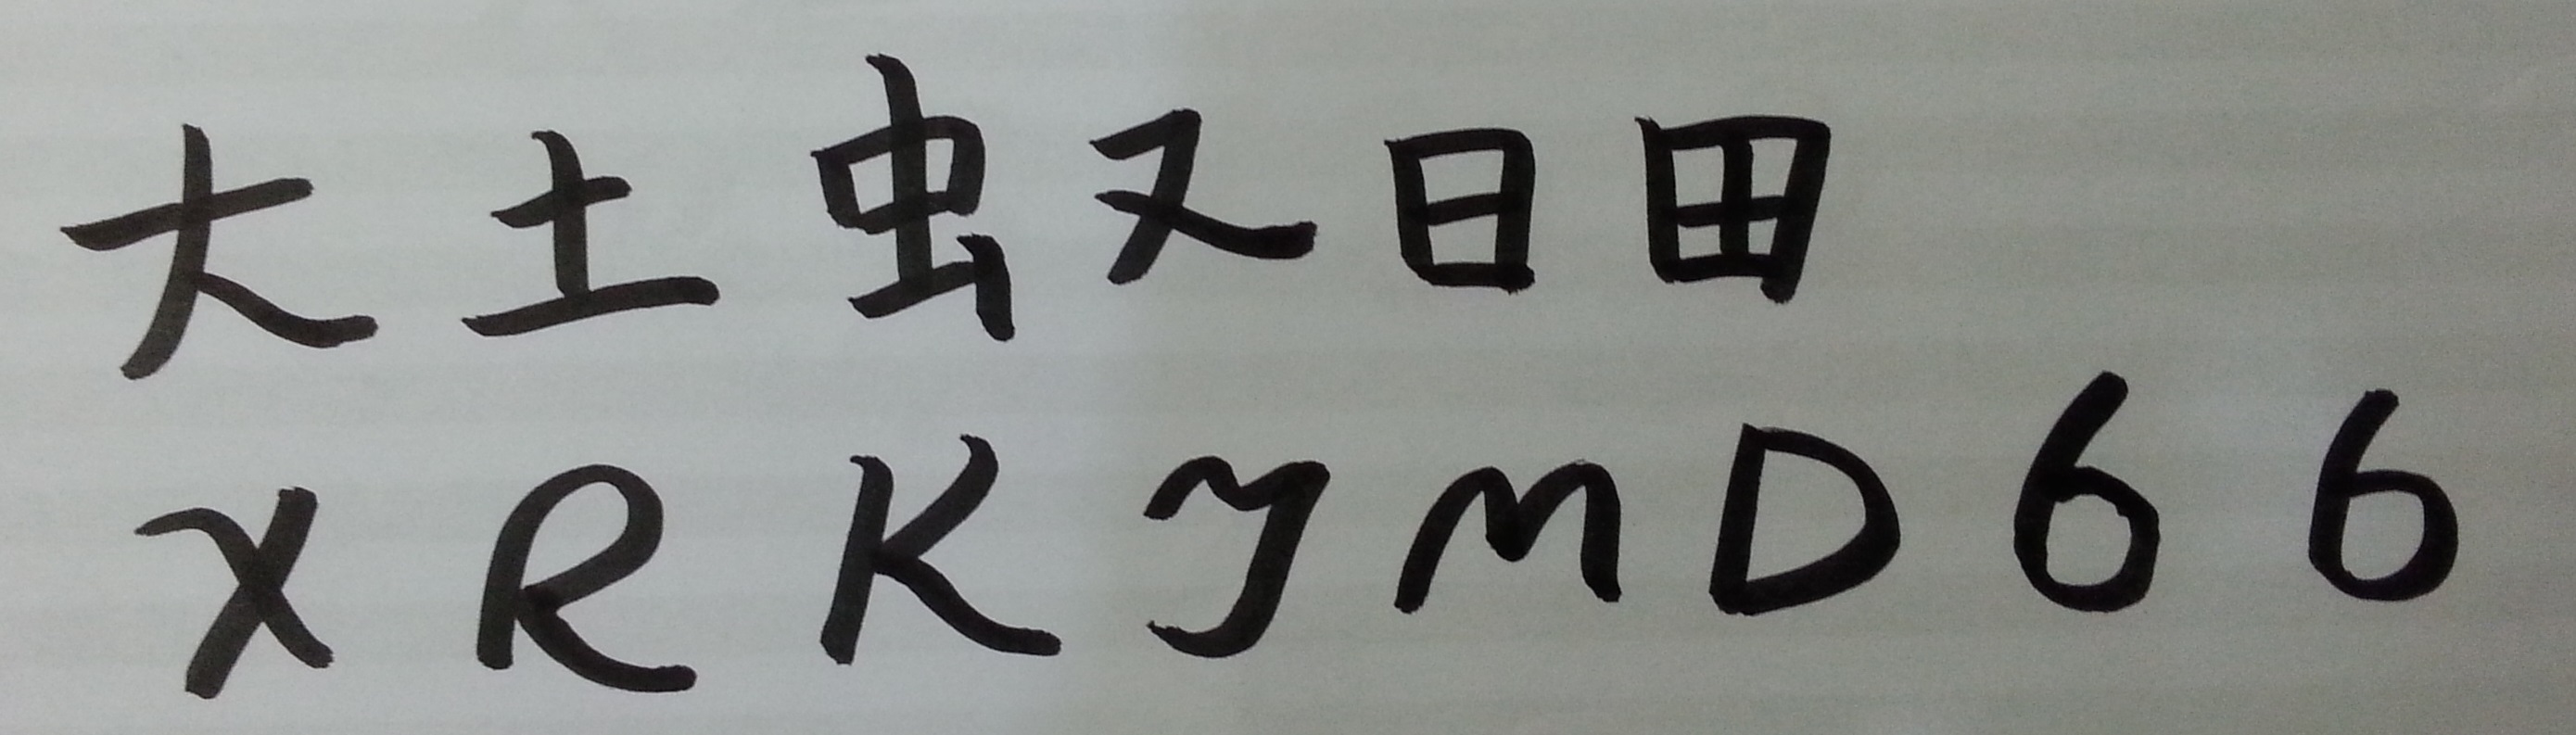 大土虫又日田
XRKYMD66